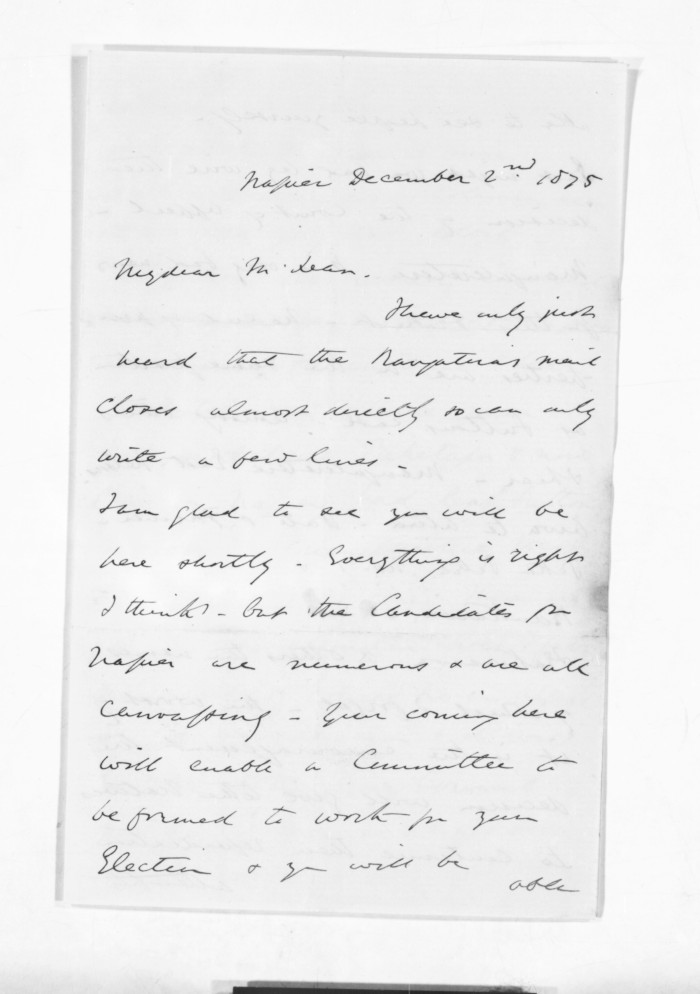 Napier December 2nd. 1875
My dear McLean.
I have only just
heard that the Rangatiras mail
closes almost directly so can only
write a few lines -
I am glad to see you will be
here shortly - Everything is right
I think - but the Candidates for
Napier are numerous & are all
canvassing - Your coming here
will enable a Committee to
be formed to work for your
Election & you will be
able